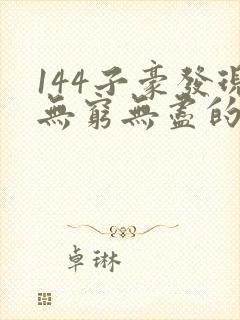 144子豪發現
無窮無盡的
卓琳